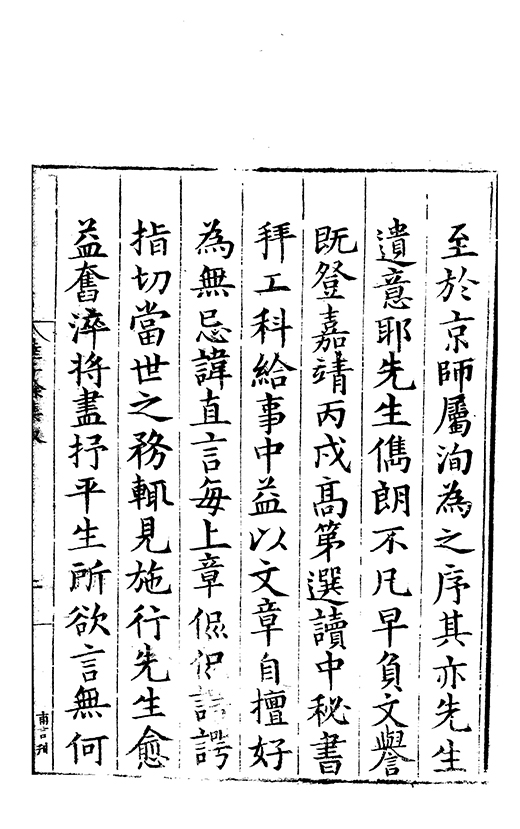 至於京師屬洵為之序其亦先生
遺意耶先生儁朗不凡早負文譽
既登嘉靖丙戌高第選讀中秘書
拜工科給事中益以文章自擅好
為無忌諱直言每上章侃侃諤
指切當世之務輒見施行先生愈
益奮淬將盡抒平生所欲言無何